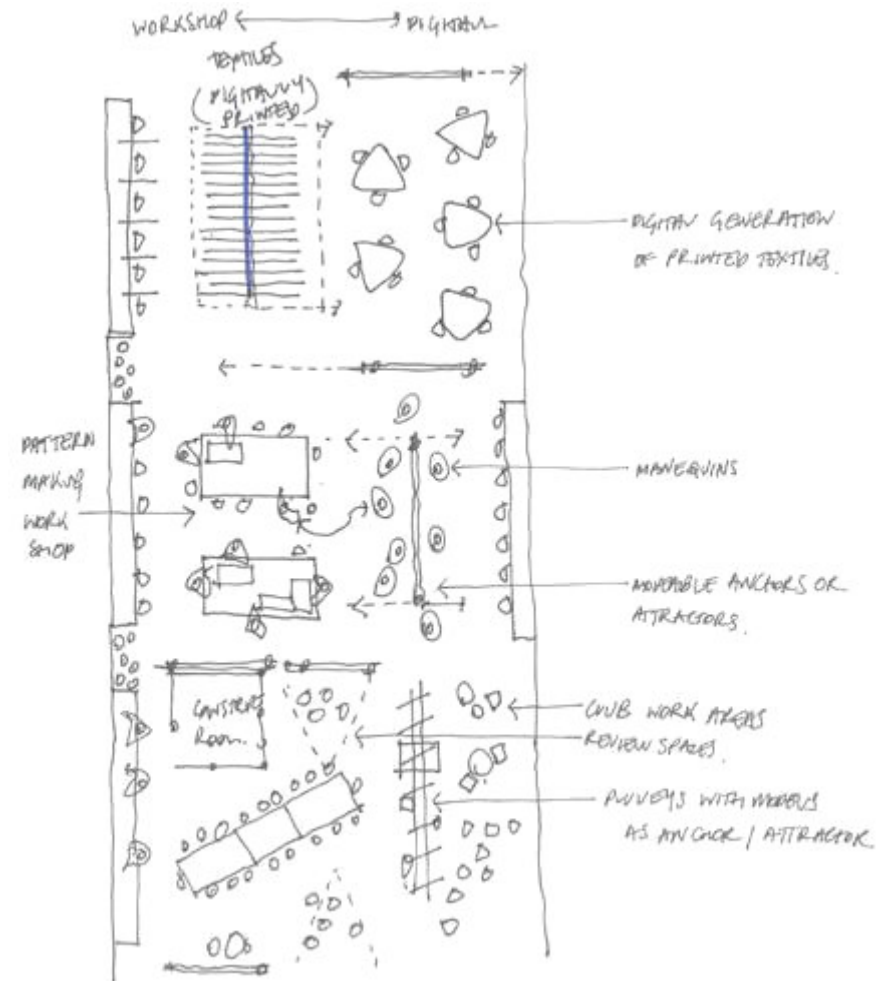 WORKSHOP
DIGITAL
TEXTILES
(DIGITALLY
PRINTED)
DIGITAL GENERATION
OF PRINTED TEXTILES.
PATTERN
MAKING
WORK
SHOP
MANEQUINS
MOVEABLE ANCHORS OR
ATTRACTORS.
Room.
CLUB WORK AREAS
REVIEW SPACES.
WITH MODELS
AS ANCHOR / ATTRACTOR